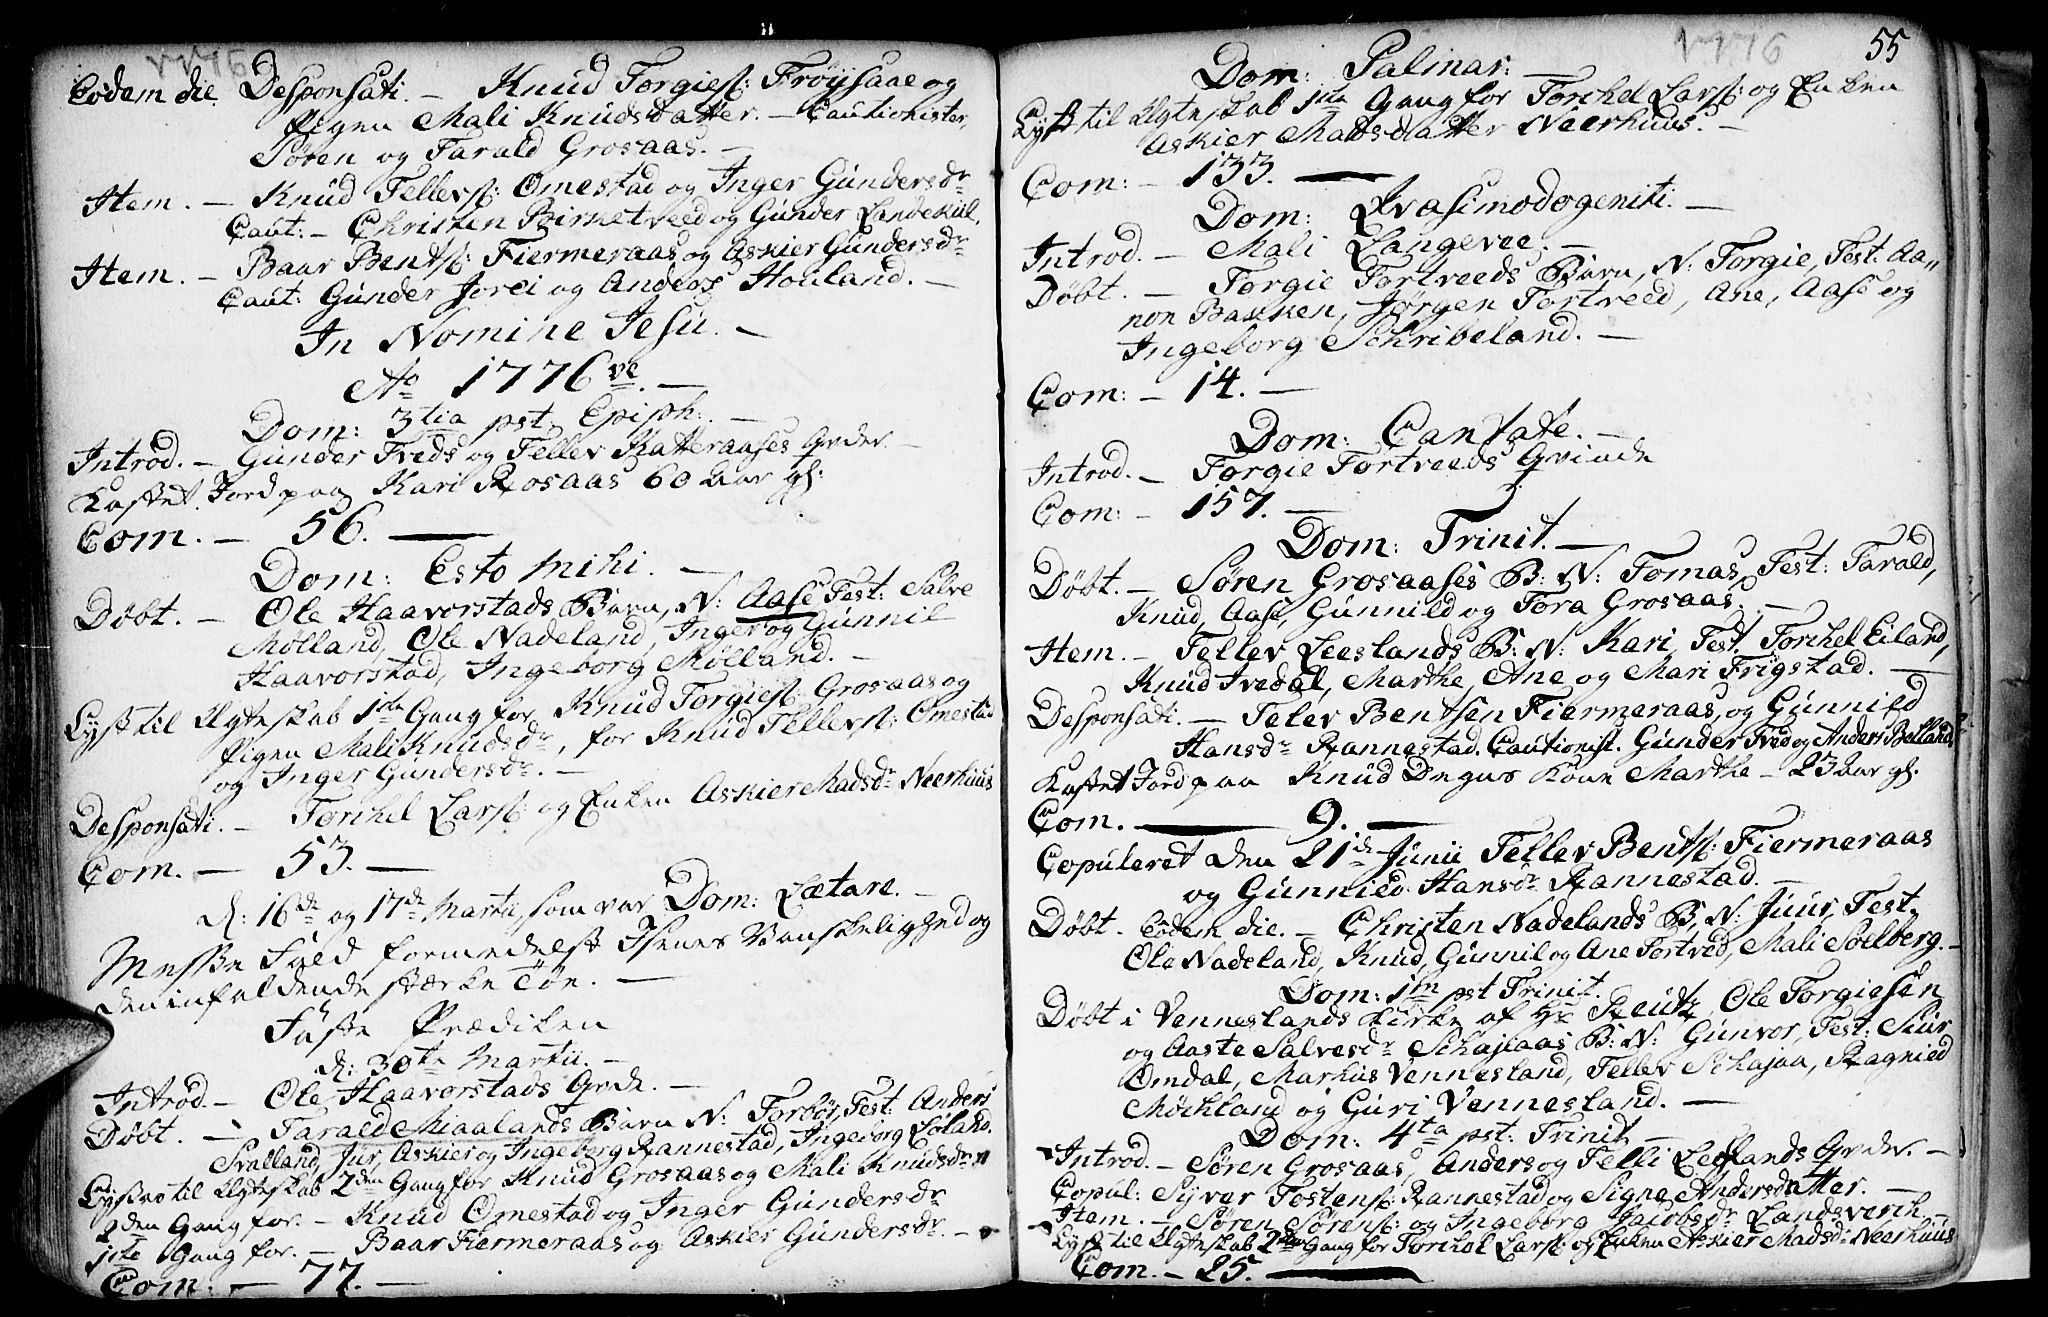 1776
Eodem die Desponsati. — Knud Torgies: Fröysaae og
Pigen Mali Knudsdatter. — Cautionister,
Sören og Tarald Grosaas. —
Item. — Knud Tellevs: Omestad og Inger Gundersdr
Caut: — Christen Birketveed og Gunder Landekiil.
Item. — Baar Bents: Fiermeraas og Askier Gundersdr
Caut: Gunder Jorei og Anders Houland. —
In Nomine Jesu. —
Ao 1776ve. —
Dom: 3tia pst. Epiph: —
Introd. — Gunder Treds og Tellev Katteraases Qvder. —
Kastet Jord paa Kari Rosaas 60 aar gl:
Com. — 56. —
Dom: Esto mihi. —
Döbt. — Ole Haavorstads Barn, N: Aase Test: Salve
Mölland, Ole Nadeland, Inger og Gunnil
Haavorstad, Ingeborg Mölland. —
Lyst til Ægteskab 1ste Gang for Knud Torgies: Grosaas og
Pigen Mali Knudsdr, for Knud Tellevs: Omestad
og Inger Gundersdr. —
Desponsati. — Torchel Lars: og Enken Askier Madsdr Neerhuus
Com. — 53. —
d: 16de og 17de Martii, som var Dom: Lætare. —
Messe Fald formedelst Isenes Vanskelighed og
den infaldende stærke Töe. —
Faste Prædiken
d: 30te Martii. —
Introd. — Ole Haavorstads Qvde. —
Döbt. — Tarald Miaalands Barn N: Torbör, Test: Anders
Svalland, Jur, Askier og Ingeborg Rannestad, Ingeborg Löland.
Lyst til Ægteskab 2den Gang for Knud Grosaas og Mali Knudsdr
2den Gang for. — Knud Omestad og Inger Gundersdr
1ste Gang for. — Baar Fiermeraas og Askier Gundersdr. —
Com: — 77. —
1776 55
Dom: Palmar:
Lyst til Ægteskab 1ste Gang for Torchel Lars: og Enken
Askier Madsdatter Neerhuus. —
Com: — 133. —
Dom: Qvasimodogeniti. —
Introd. — Mali Langevee. —
Döbt. — Torgie Tortveeds Barn, N: Torgie, Test: Aa„
non Bakken, Jörgen Tortveed, Ane, Aase og
Ingeborg Schribeland. —
Com: — 14. —
Dom: Cantate. —
Introd. — Torgie Tortveeds Qvinde
Com: — 157. —
Dom: Trinit. —
Döbt. — Sören Grosaases B: N: Tomas, Test: Tarald,
Knud, Aase, Gunnild og Tora Grosaas. —
Item. — Tellev Leeslands B: N: Kari, Test. Torchel Eiland,
Knud Ivedal, Marthe, Ane og Mari Frigstad. —
Desponsati. — Telev Bentsen Fiermeraas, og Gunnild
Hansdr Rannestad. Cautionist. Gunder Tred og Anders Belland
Kastet Jord paa Knud Degns Kone Marthe — 23 aar gl.
Com. — 9. —
Copuleret den 21de Junii Tellev Bents: Fiermeraas
og Gunnied Hansdr Rannestad. —
Döbt. Eodem die. — Christen Nadelands B. N: Juur, Test.
Ole Nadeland, Knud, Gunnil og Ane Tortved, Mali Solberg. —
Dom: 1m pst Trinit.
Döbt i Venneslands Kirke af Hr Reutz, Ole Torgiesen
og Aaste Salvesdr Schajlaas B: N: Gunvor, Test: Siur
Omdal, Markus Vennesland, Tellev Schajaa, Ragnied
Möchland og Guri Vennesland. —
Dom: 4ta pst: Trinit —
Introd. — Sören Grosaas, Anders og Telli Leslands Qvder. —
Copul: Syver Tostens: Rannestad og Signe Andersdatter. —
Item. — Sören Sörens: og Ingeborg Jacobsdr Landsverch. —
Lyst til Ægteskab 2den Gang for Torchel Lars: og Enken Askier Madsdr Neerhuus
Com. — 25. —